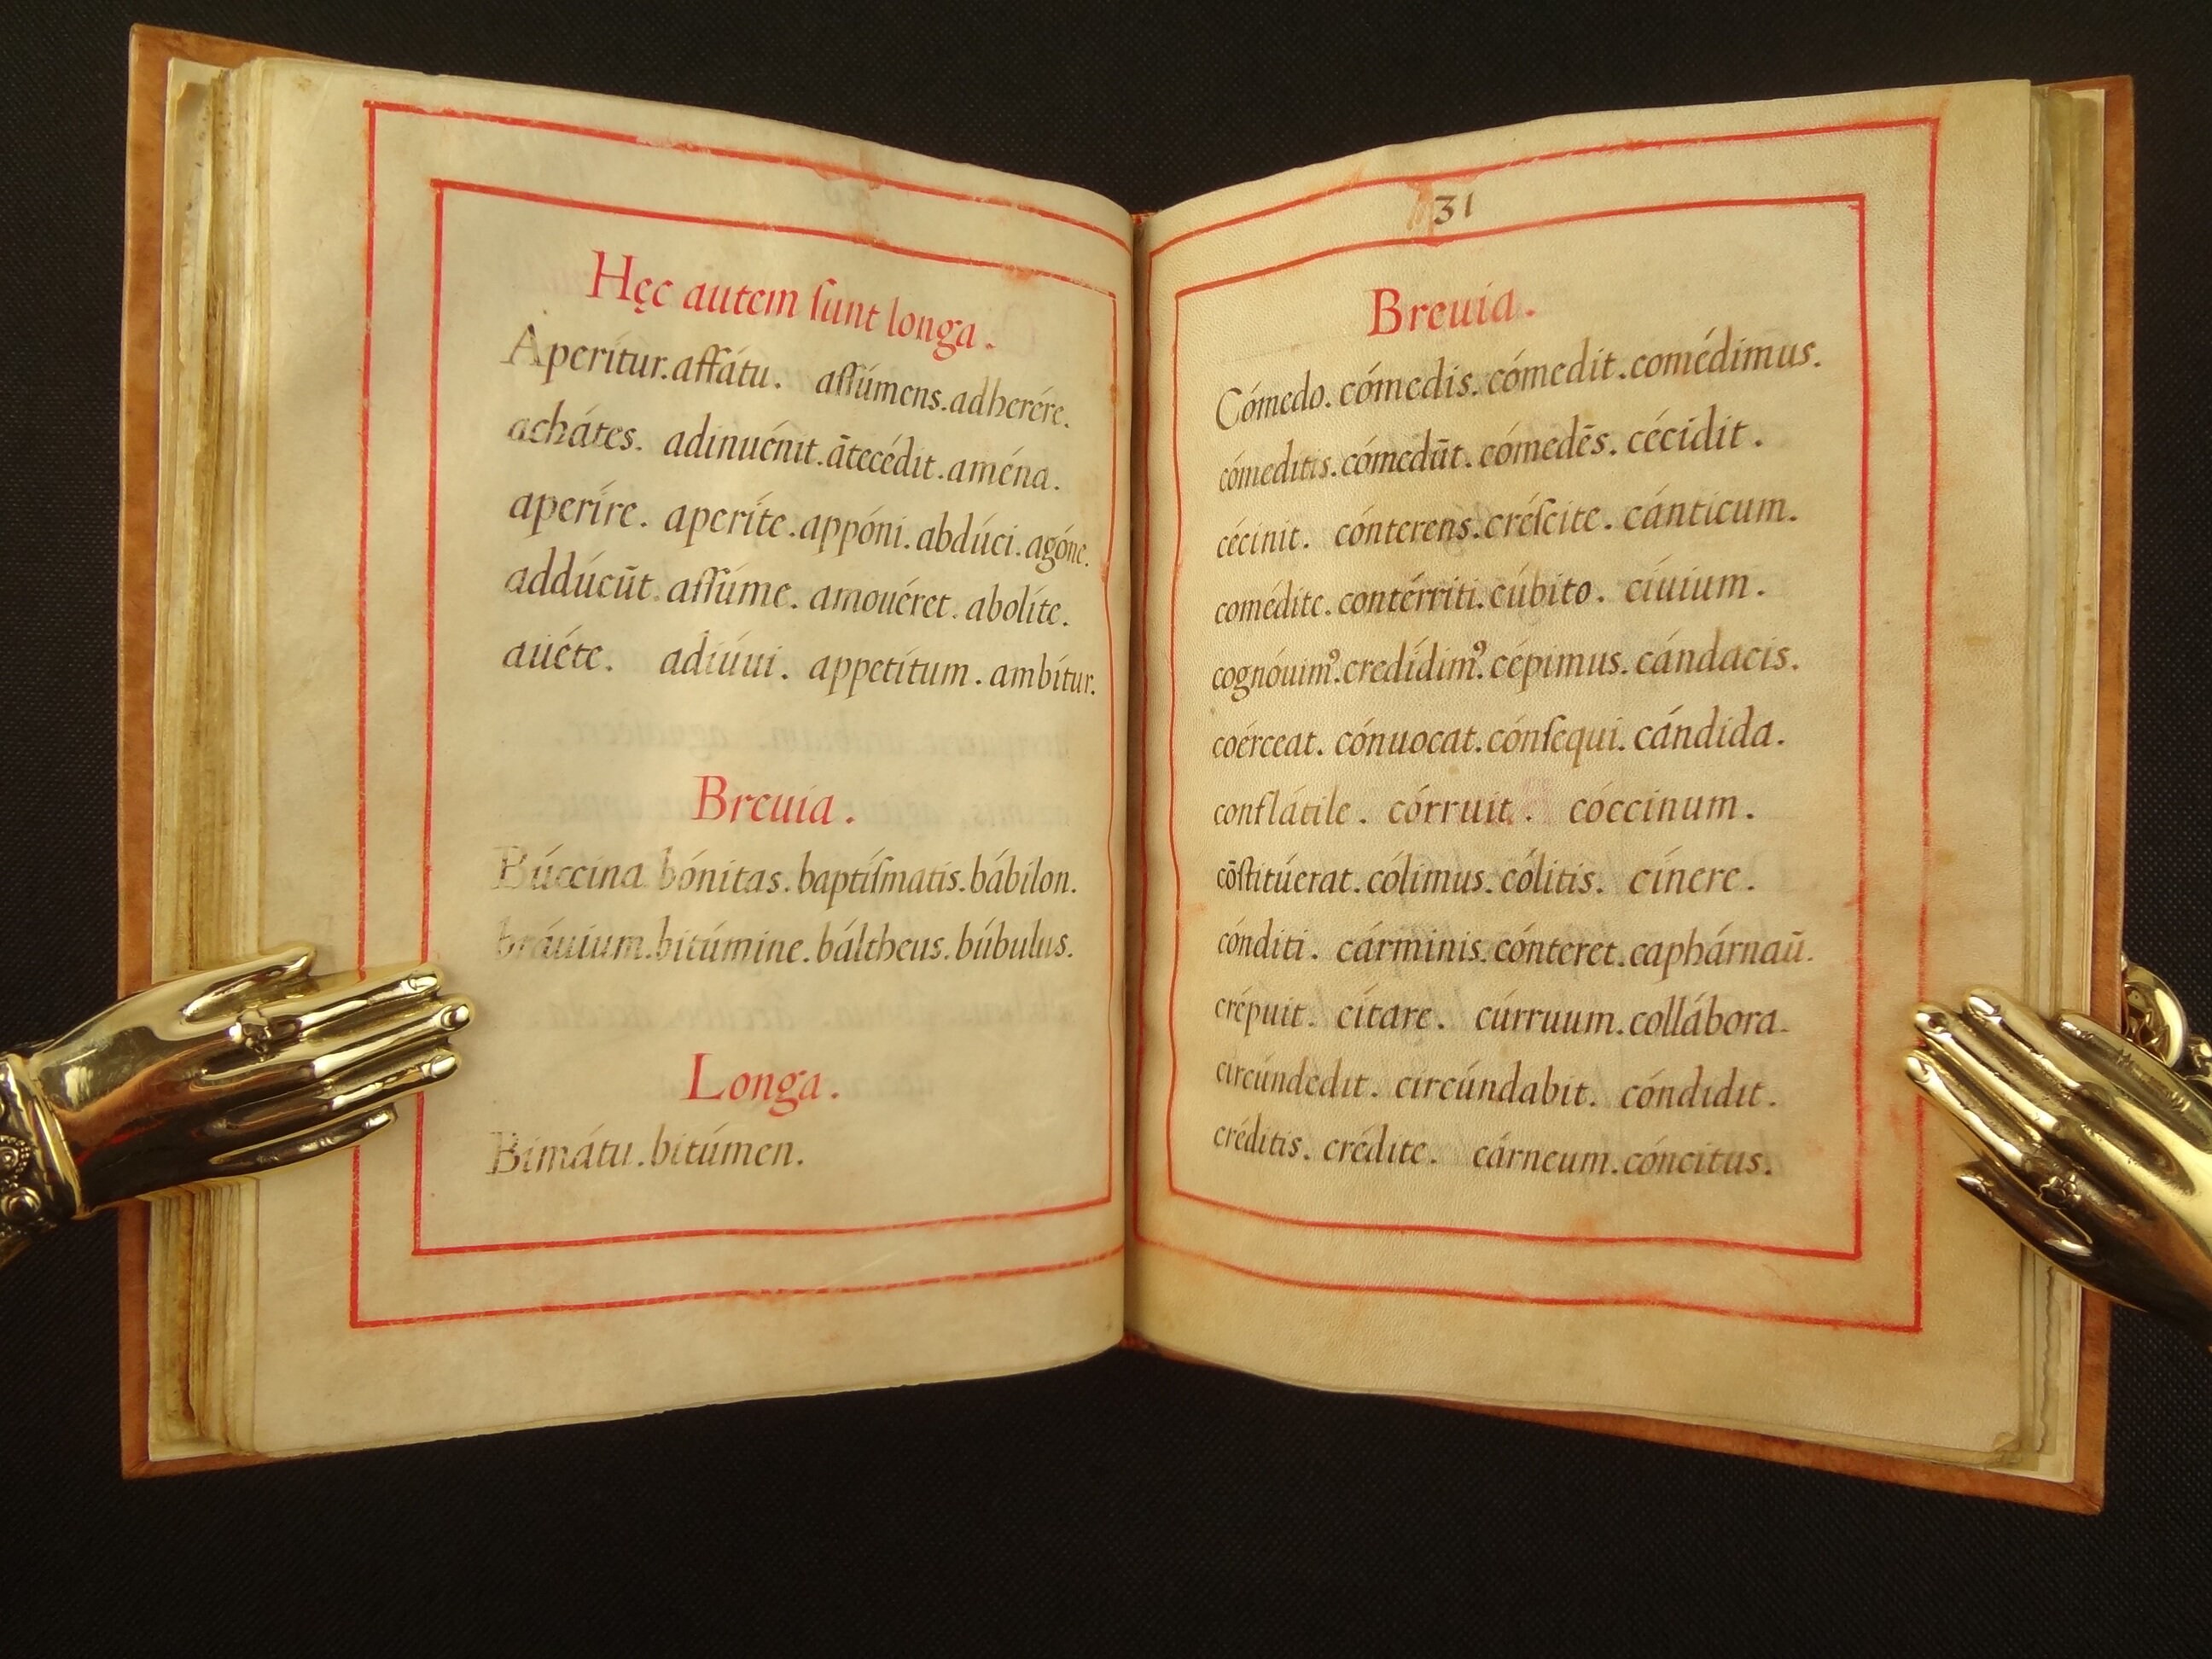 Hęc autem ſunt longa.
Aperítur. affátu. aſſúmens. adherére.
achátes. adinuénit. ātecédit. aména.
aperíre. aperíte. appóni. abdúci. agóne.
addúcūt. aſſúme. amouéret. abolíte.
auéte. adiúui. appetítum. ambítur.
Breuia.
Búccina bónitas. baptíſmatis. bábilon.
bráuium. bitúmine. báltheus. búbulus.
Longa.
Bimátu. bitúmen.
31
Breuia.
Cómedo. cómedis. cómedit. comédimus.
cómeditis. cómedūt. cómedēs. cécidit.
cécinit. cónterens. créſcite. cánticum.
comédite. contérriti. cúbito. cíuium.
cognóuimꝰ. credídimꝰ. cépimus. cándacis.
coérceat. cónuocat. cónſequi. cándida.
conflátile. córruit. cóccinum.
cōſtitúerat. cólimus. cólitis. cínere.
cónditi. cárminis. cónteret. caphárnaū.
crépuit. citare. cúrruum. collábora.
circúndedit. circúndabit. cóndidit.
créditis. crédite. cárneum. cóncitus.